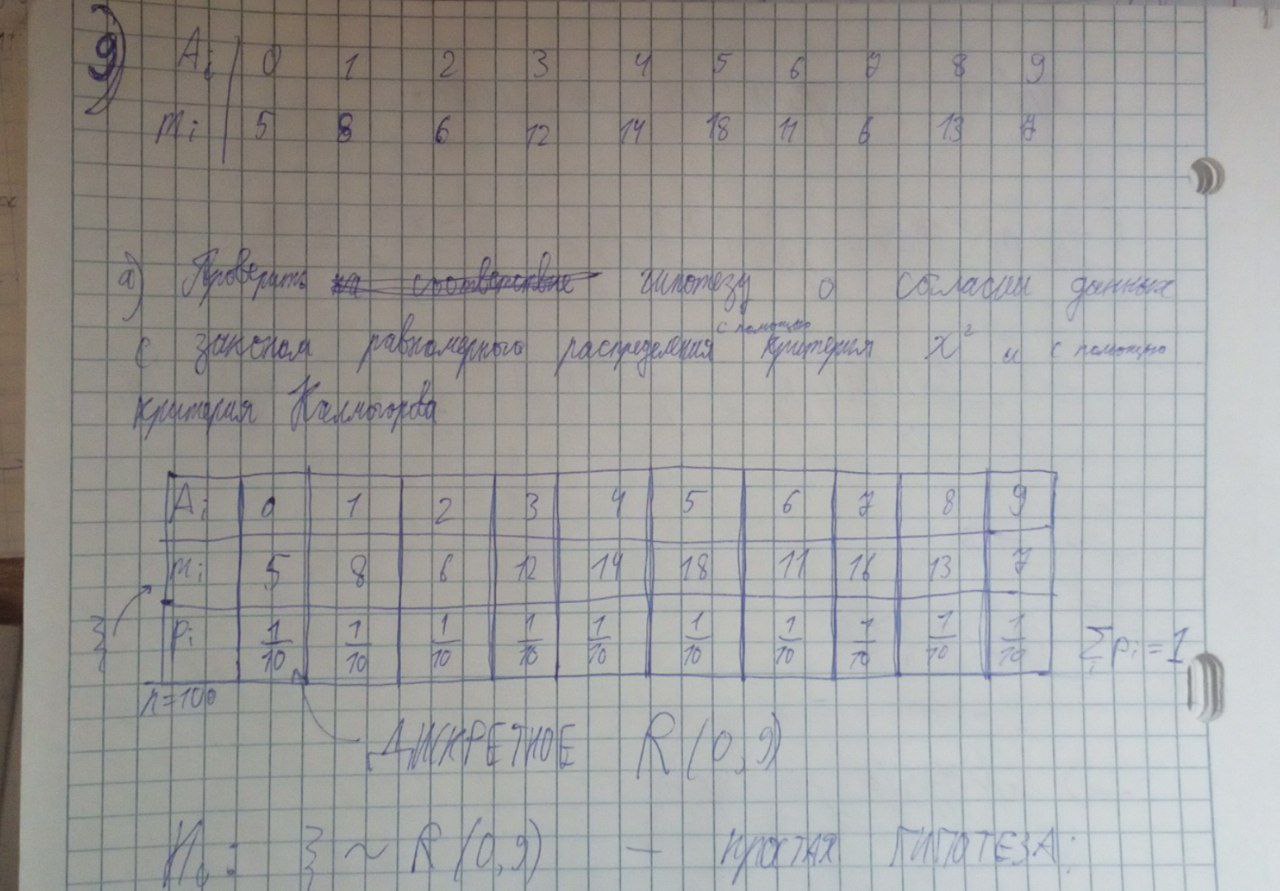 9) Ai | 0 1 2 3 4 5 6 7 8 9
mi | 5 8 6 12 14 18 11 6 13 7
а) Проверить на соответствие гипотезу о согласии данных
с помощью
с законом равномерного распределения критерия X² и с помощью
критерия Колмогорова
Ai 0 1 2 3 4 5 6 7 8 9
mi 5 8 6 12 14 18 11 16 13 7
pi 1/10 1/10 1/10 1/10 1/10 1/10 1/10 1/10 1/10 1/10 ∑i pi = 1
ξ
n=100
ДИСКРЕТНОЕ R(0,9)
H₀: ξ ~ R(0,9) — ПРОСТАЯ ГИПОТЕЗА;